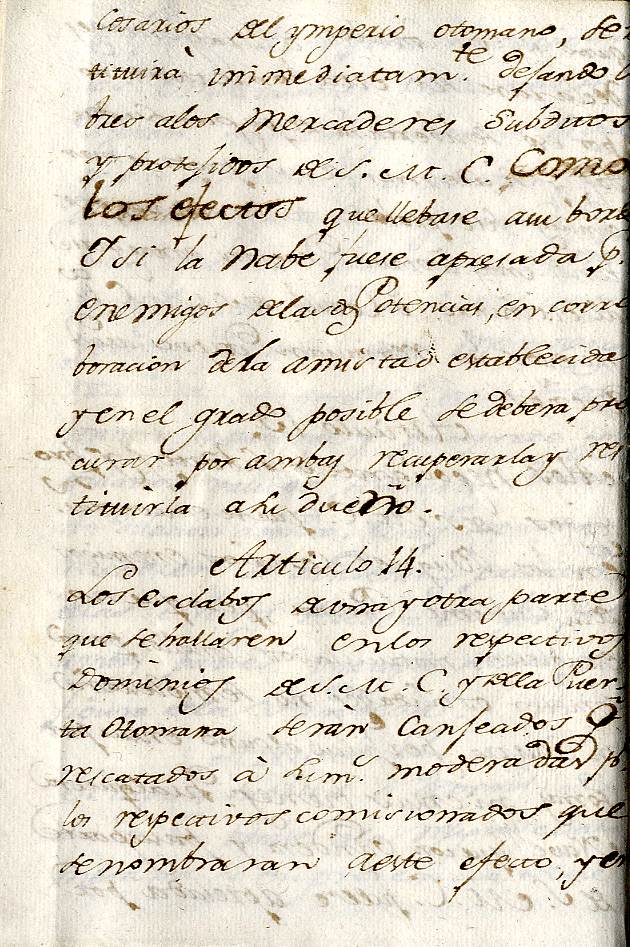 cosarios del ymperio otomano, se
tituirà inmediatam.te dejando
bres alos Mercaderes Subditos
y protejidos de S. M. C. Como
los efectos que llebase a su bord
Y si la Nabe fuese apresada p.
enemigos delas dos Potencias, en corr
boracion de la amistad establecida
y en el grado posible se debera pro
curar por ambas recuperarla y res
tituirla a su dueño.
Articulo 14.
Los esclabos de una y otra parte
que se hallaren en los respectivos
Dominios de S. M. C. y de la Puer-
ta Otomana seràn Canjeados
rescatados à sum.s moderadas p.
los respectivos comisionados que
se nombraran a este efecto, y en